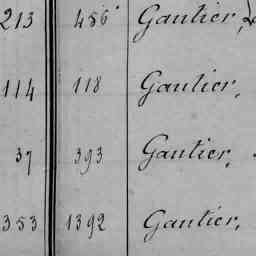 213 456 Gautier,
114 118 Gautier,
37 393 Gautier,
353 1392 Gautier,